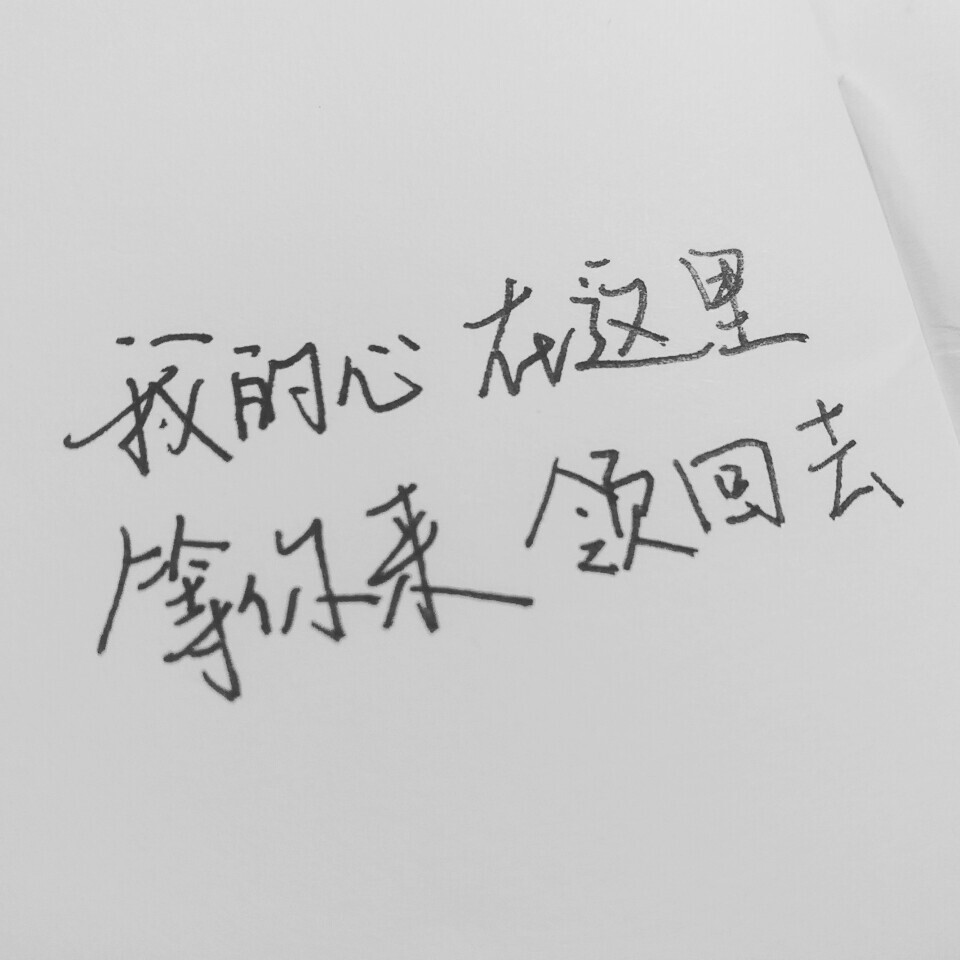 我的心在这里
等你来领回去